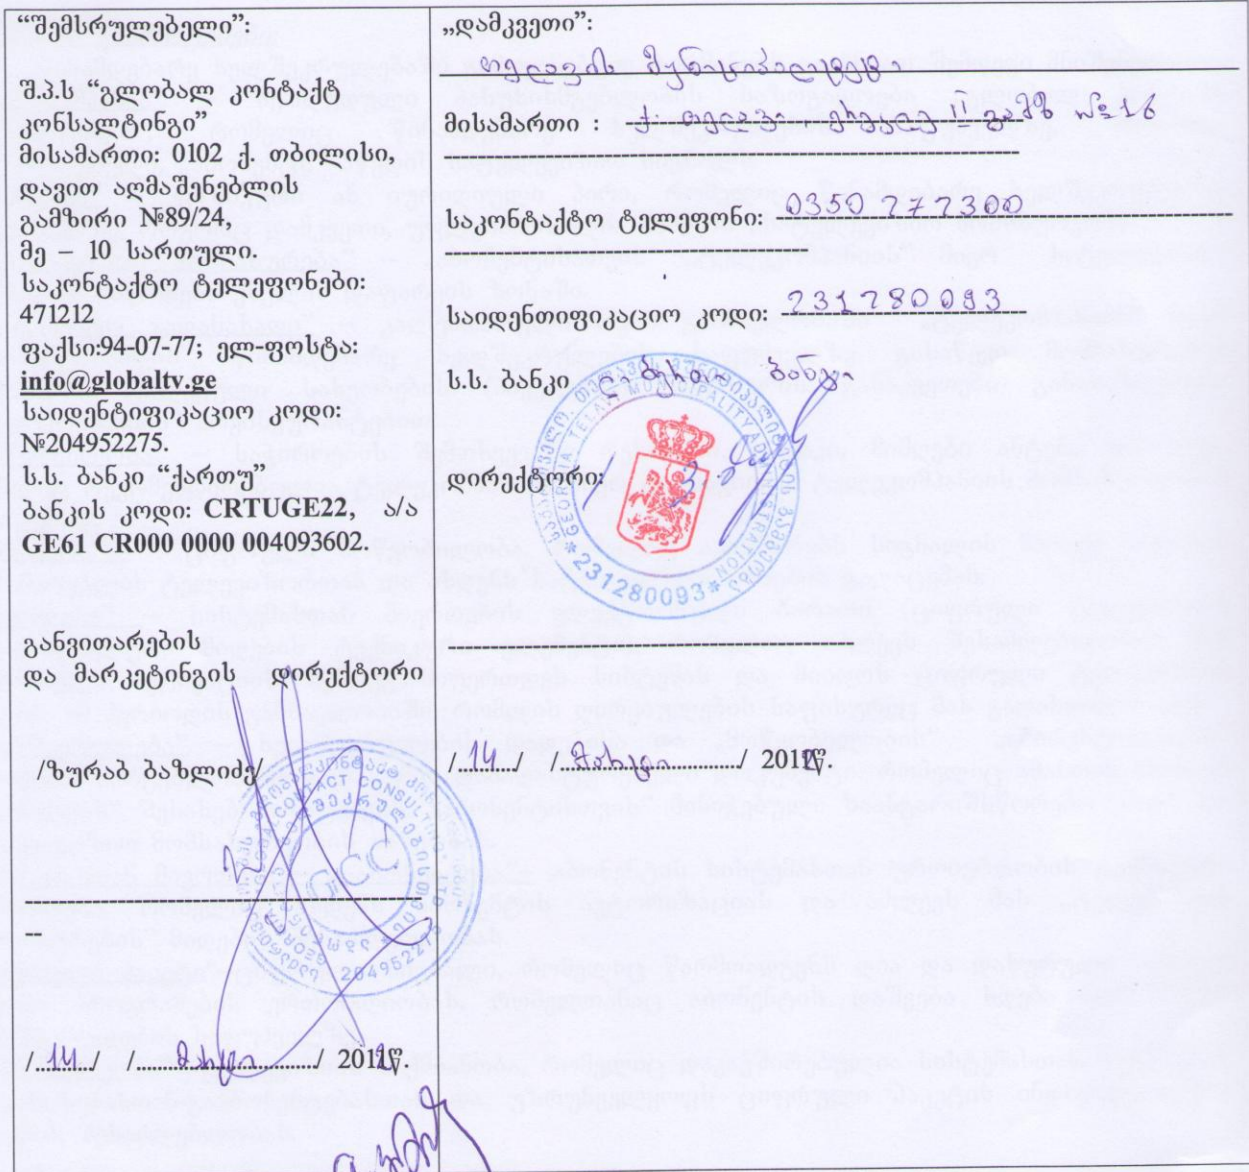 “შემსრულებელი”:
შ.პ.ს “გლობალ კონტაქტ
კონსალტინგი”
მისამართი: 0102 ქ. თბილისი,
დავით აღმაშენებლის
გამზირი №89/24,
მე – 10 სართული.
საკონტაქტო ტელეფონები:
471212
ფაქსი:94-07-77; ელ-ფოსტა:
info@globaltv.ge
საიდენტიფიკაციო კოდი:
№204952275.
ს.ს. ბანკი “ქართუ”
ბანკის კოდი: CRTUGE22, ა/ა
GE61 CR000 0000 004093602.
განვითარების
და მარკეტინგის დირექტორი
/ზურაბ ბაზლიძე/
--
/.14./ /.მარტი/ 2012წ.
„დამკვეთი”:
თელავის მუნიციპალიტეტი
მისამართი : ქ. თელავი ერეკლე II გამზ №16
საკონტაქტო ტელეფონი: 0350 277300
საიდენთიფიკაციო კოდი: 231280093
ს.ს. ბანკი ბანკი
დირექტორი:
GEORGIA TELAVI MUNICIPALITY ADMINISTRATION
*231280093*
/.14./ /.მარტი/ 2012წ.
GLOBAL CONTACT CONSULTING
204952275